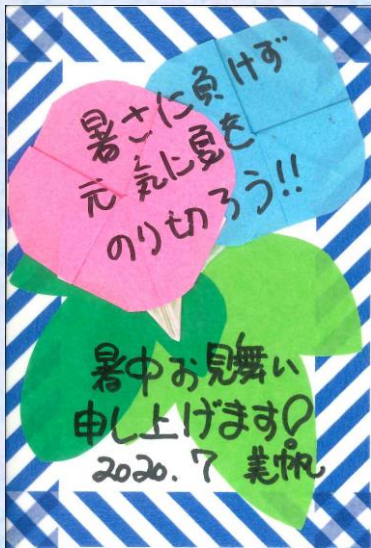 暑さに負けず
元気に夏を
のり切ろう!!
暑中お見舞い
申し上げます!
2020.7 美帆